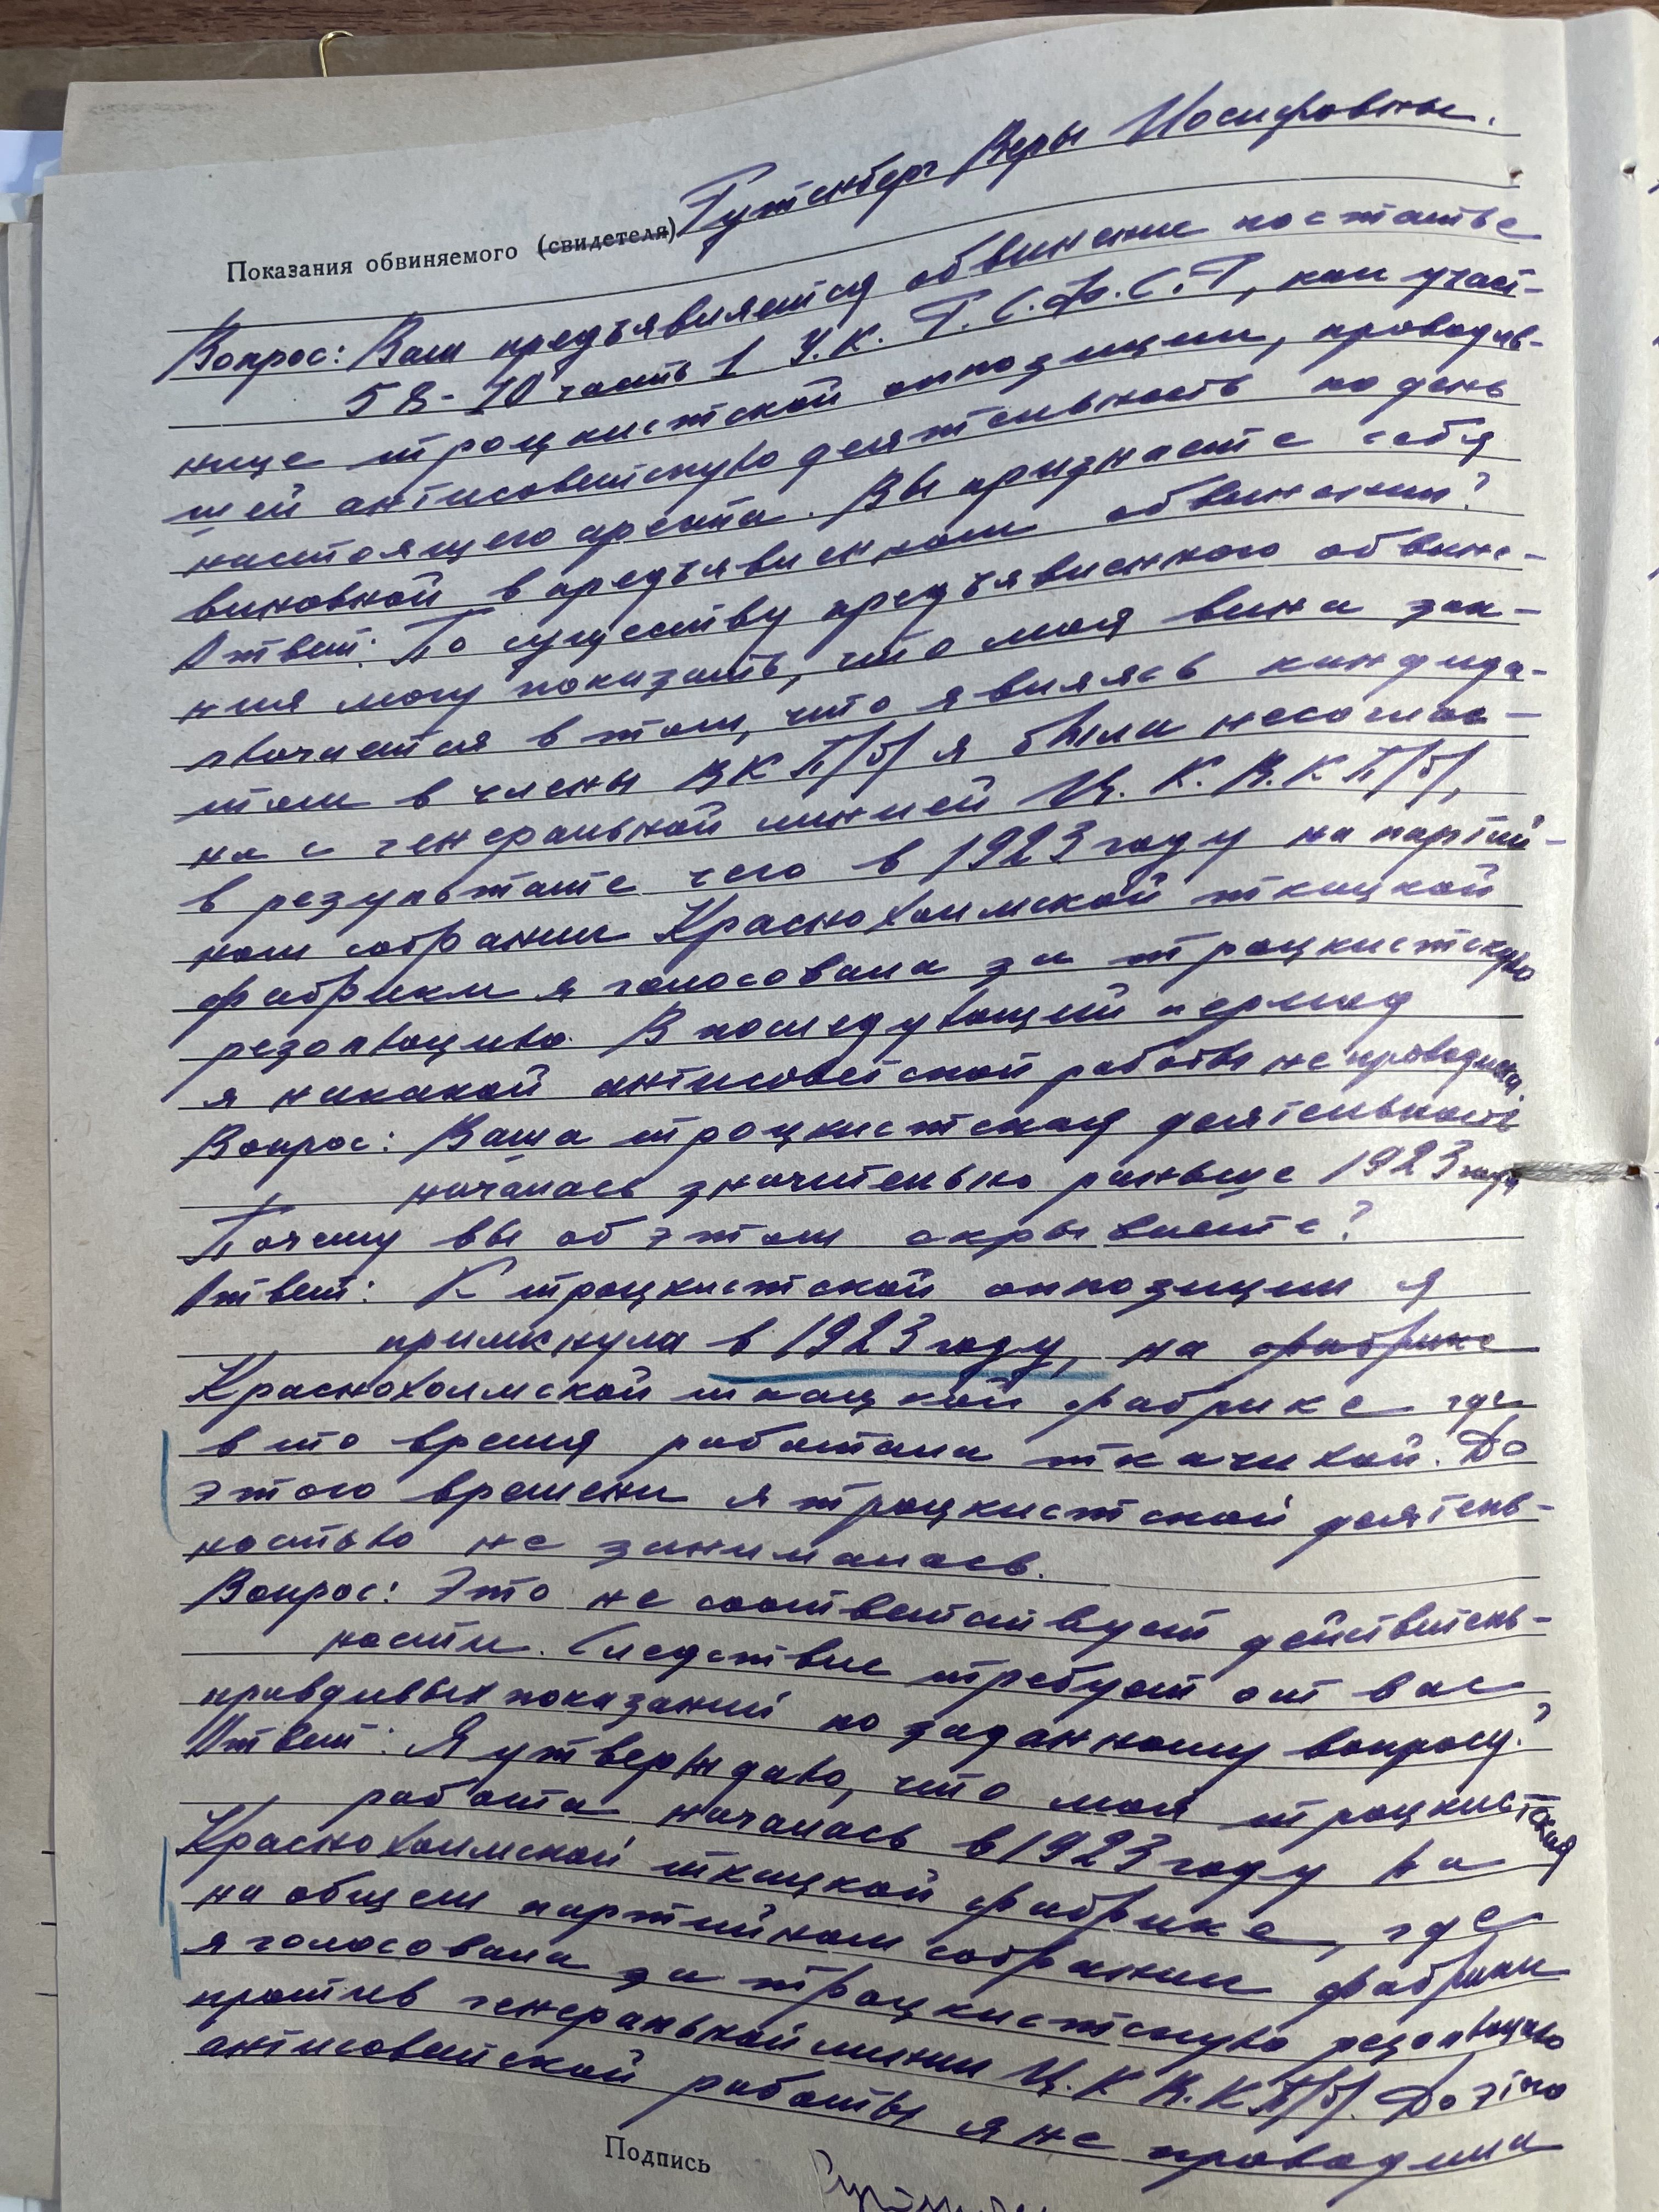 Показания обвиняемого (свидетеля) Гутенберг Веры Иосифовны.
Вопрос: Вам предъявляется обвинение по статье
58-10 часть 1 У.К. Р.С.Ф.С.Р, как участ-
нице троцкистской оппозиции, проводив-
шей антисоветскую деятельность по день
настоящего ареста. Вы признаете себя
виновной в предъявленном обвинении?
Ответ: По существу предъявленного обвине-
ния могу показать, что моя вина зак-
лючается в том, что являясь кандида-
том в члены ВКП/б/ я была несоглас-
на с генеральной линией Ц.К.В.КП/б/,
в результате чего в 1923 году на партий-
ном собрании Краснохолмской ткацкой
фабрики я голосовала за троцкистскую
резолюцию. В последующий период
я никакой антисоветской работы не проводила.
Вопрос: Ваша троцкистская деятельность
началась значительно раньше 1923 года
Почему вы об этом скрываете?
Ответ: К троцкистской оппозиции я
примкнула в 1923 году, на фабрике
Краснохолмской ткацкой фабрике где
в то время работала ткачихой. До
этого времени я троцкистской деятель-
ностью не занималась.
Вопрос: Это не соответствует действитель-
ности. Следствие требует от вас
правдивых показаний по заданному вопросу?
Ответ: Я утверждаю, что моя троцкистская
работа началась в 1923 году на
Краснохолмской ткацкой фабрике, где
на общем партийном собрании фабрики
я голосовала за троцкистскую резолюцию
против генеральной линии Ц.К В.КП/б/. До этого
антисоветской работы я не проводила
Подпись